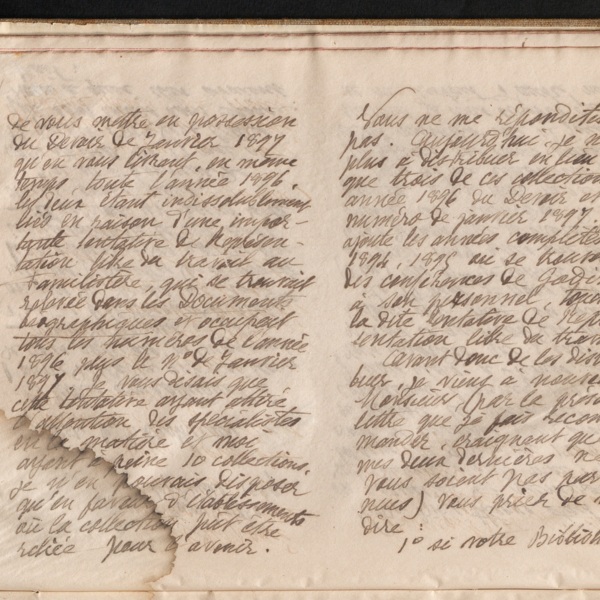 de vous mettre en possession
du Devoir de Janvier 1897
qu'en vous livrant, en même
temps, toute l'année 1896,
les deux étant indissolublement
liés en raison d'une impor-
tante tentative de Représen-
tation libre du travail au
Familistère, qui se trouvait
relevée dans les Documents
biographiques et occupait
tous les numéros de l'année
1896 plus le No de Janvier
1897. Je vous disais que
cette tentative ayant attiré
l'attention des spécialistes
en la matière et moi
ayant à peine 10 collections,
je n'en pouvais disposer
qu'en faveur d'établissements
où la collection pût être
reliée pour l'avenir.
Vous ne me répondîtes
pas. Aujourd'hui je n'
plus à distribuer en lieu
que trois de ces collection
année 1896 du Devoir et
numéro de janvier 1897.
ajoute les années complètes
1894, 1895 où se trouve
des conférences de Godin
à son personnel, touch
la dite tentative de Repr
sentation libre du trav
Avant donc de les dist
buer, je viens à nouveau
Monsieur, (par la prése
lettre que je fais recom
mander, craignant que
mes deux dernières ne
vous soient pas parv
nues) vous prier de
dire :
1o si votre Biblioth